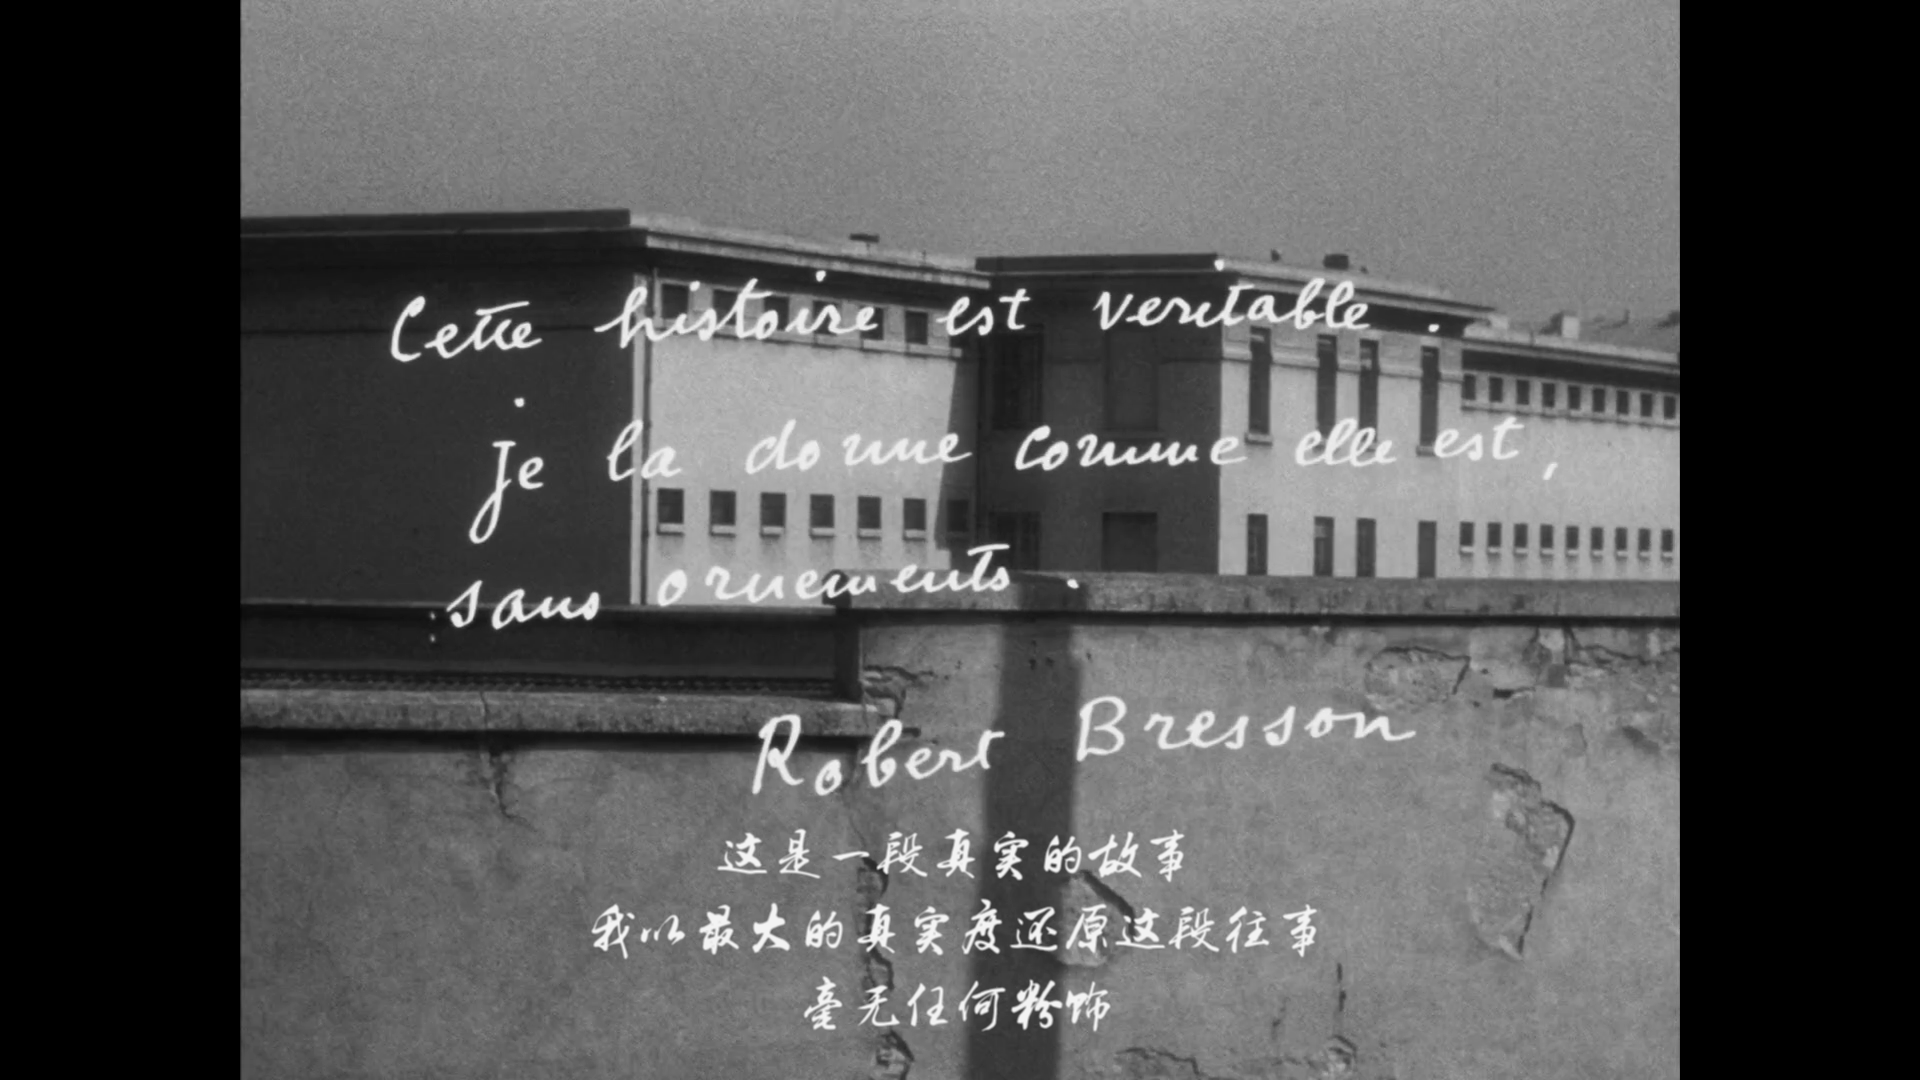 Cette histoire est veritable.
je la donne comme elle est,
sans ornements.
Robert Bresson
这是一段真实的故事
我以最大的真实度还原这段往事
毫无任何粉饰